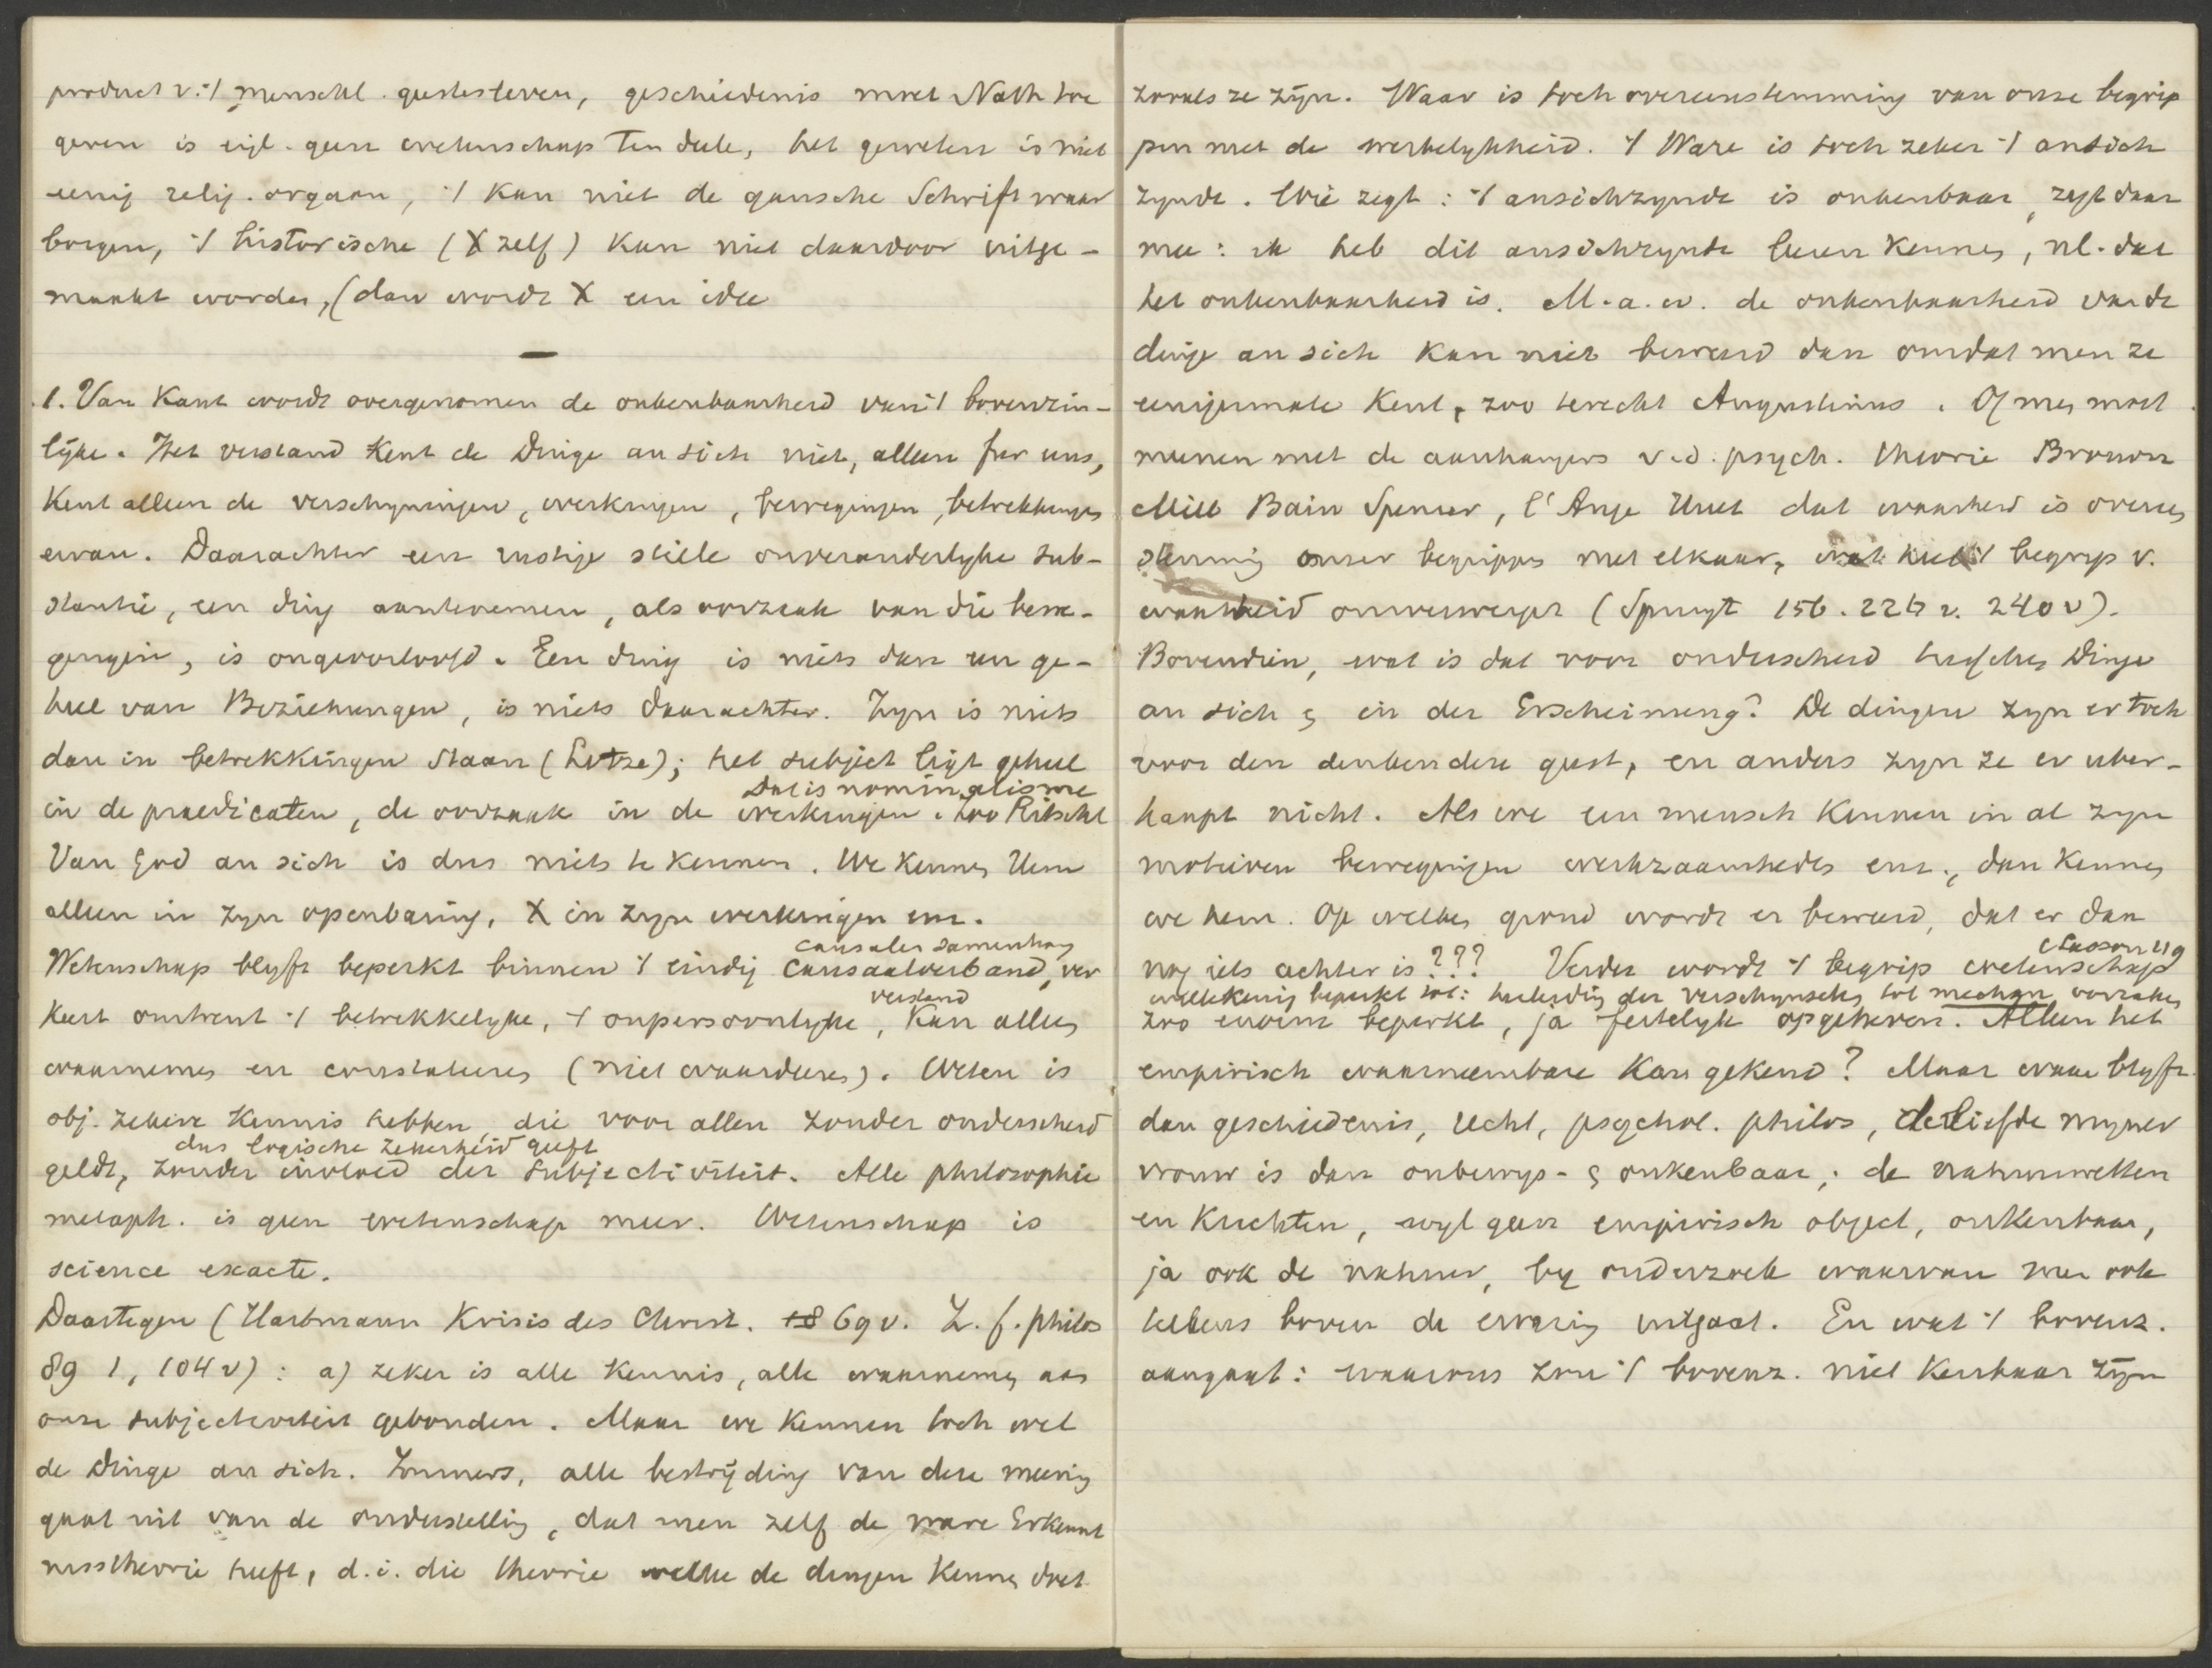 product v. 't menschl. geestesleven, geschiedenis moet Nath toe
geven is eigl. geen wetenschap Ten deele, het geweten is niet
eenig relig. orgaan, 't kan niet de gansche Schrift waar
borgen, 't historische (X zelf) kan niet daardoor uitge-
maakt worden, (dan wordt X een idee
—
1. Van Kant wordt overgenomen de onkenbaarheid van 't bovenzin-
lijke. Het verstand kent de Dinge an sich niet, alleen fur uns,
Kent alleen de verschyningen, werkingen, bewegingen, betrekkingen
ervan. Daarachter een rustige stille onveranderlyke sub-
stantie, een ding aantenemen, als oorzaak van die bewe-
gingen, is ongeoorloofd. Een ding is niets dan een ge-
heel van Beziehungen, is niets daarachter. Zyn is niets
dan in betrekkingen staan (Lotze); het subject ligt geheel
Dat is nominalisme
in de praedicaten, de oorzaak in de werkingen. Zoo Ritschl
Van God an sich is dus niets te kennen. We kennen Hem
alleen in zyn openbaring, X in zyn werkingen enz.
causalen samenhang
Wetenschap blyft beperkt binnen 't eindig causaalverband, ver
verstand
keert omtrent 't betrekkelyke, 't onpersoonlyke, kan alleen
waarnemen en constateeren (niet waardeeren). Weten is
obj. zekere kennis hebben, die voor allen zonder onderscheid
dus logische zekerheid geeft
geldt, zonder invloed der subjectiviteit. Alle philosophie
metaph. is geen wetenschap meer. Wetenschap is
science exacte.
Daartegen (Hartmann Krisis des Christ. 69 v. Z. f. philos
89 1, 104 v): a) zeker is alle kennis, alle waarneming aan
onze subjectiviteit gebonden. Maar we kennen toch wel
de Dinge an sich. Immers, alle bestrijding van deze meening
gaat uit van de onderstelling, dat men zelf de ware Erkennt
nisstheorie heeft, d.i. die theorie welke de dingen kennen doet
zooals ze zijn. Waar is toch overeenstemming van onze begrip
pen met de werkelykheid. 't Ware is toch zeker 't ansich
zynde. Wie zegt: 't ansichzynde is onkenbaar, zegt daar
mee: ik heb dit ansichzynde leeren kennen, nl. dat
het onkenbaarheid is. M.a.w. de onkenbaarheid van de
dinge an sich kan niet beweerd dan omdat men ze
eenigermate kent, zoo terecht Augustinus. Of men moet
meenen met de aanhangers v.d. psych. theorie Brown
Mill Bain Spencer, l'Ange Huet dat waarheid is overeen
stemming onzer begrippen met elkaar, wat heel 't begrip v.
waarheid omverwerpt (Spruyt 156. 226 v. 240 v).
Bovendien, wat is dat voor onderscheid tusschen Dinge
an sich & in der Erscheinung? De dingen zyn er toch
voor den denkenden geest, en anders zyn ze er uber-
haupt nicht. Als we een mensch kennen in al zyn
motieven bewegingen werkzaamheden enz., dan kennen
we hem. Op welken grond wordt er beweerd, dat er dan
(Lasson 119
nog iets achter is??? Verder wordt 't begrip wetenschap
willekeurig beperkt tot: herleiding der verschynselen tot mechan. oorzaken
zoo enorm beperkt, ja feitelyk opgeheven. Alleen het
empirisch waarneembare kan gekend? Maar waar blyft
dan geschiedenis, recht, psychol. philos, de liefde myner
vrouw is dan onbewys- & onkenbaar; de natuurwetten
en krachten, wyl geen empirisch object, onkenbaar,
ja ook de natuur, by onderzoek waarvan men ook
telkens boven de ervaring uitgaat. En wat 't bovenz.
aangaat: waarom zou 't bovenz. niet kenbaar zijn